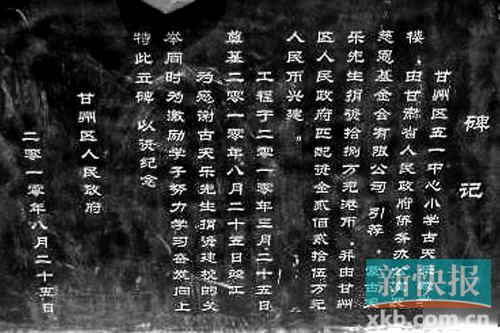 碑记
甘州区五一中心小学古天乐
楼，由甘肃省人民政府侨务办公
慈恩基金会有限公司引荐，蒙古天
乐先生捐资拾捌万元港币，并由甘州
区人民政府匹配资金贰佰贰拾伍万元
人民币兴建。
工程于二零一零年三月二十五日
奠基二零一零年八月二十五日竣工
为感谢古天乐先生捐资建校的义
举同时为激励学子努力学习奋发向上
特此立碑 以资纪念
甘州区人民政府
二零一零年八月二十五日
新快报
xkb.com.cn